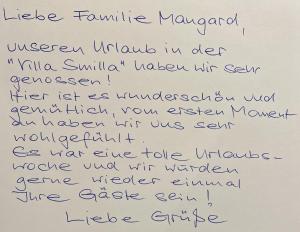 Liebe Familie Mangard,
unseren Urlaub in der
"Villa Smilla" haben wir sehr
genossen!
Hier ist es wunderschön und
gemütlich, vom ersten Moment
an haben wir uns sehr
wohlgefühlt.
Es war eine tolle Urlaubs-
woche und wir würden
gerne wieder einmal
Ihre Gäste sein!
Liebe Grüße